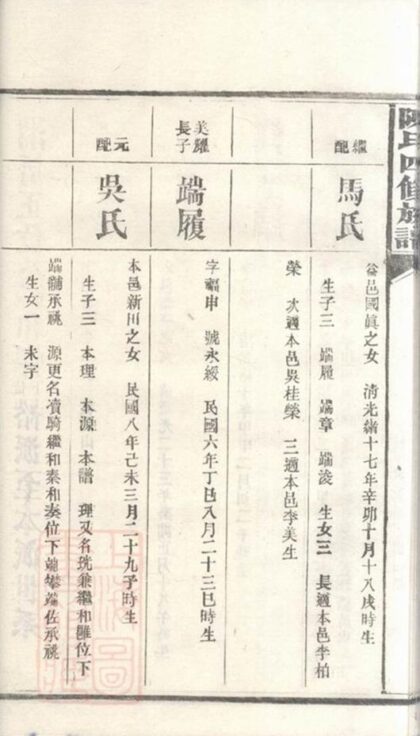 陳氏四修族譜
繼配
馬氏
益邑國眞之女 清光緒十七年辛卯十月十八戌時生
生子三 端履 端章 端浚 生女三 長適本邑李柏
榮 次適本邑吳桂榮 三適本邑李美生
美躍長子
端履
字福申 號永綏 民國六年丁巳八月二十三巳時生
元配
吳氏
本邑新田之女 民國八年己未三月二十九子時生
生子三 本理 本源 本譜 理又名珖兼繼和雝位下
端黼承祧 源更名賣騎繼和秦和湊位下端攀端佐承祧
生女一 未字